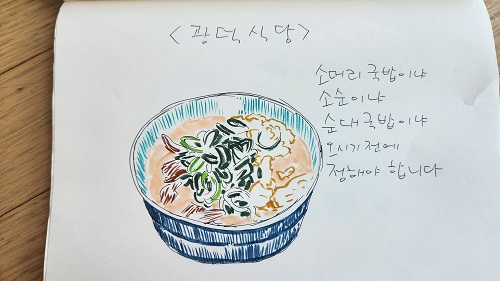 <광덕식당>
소머리국밥이냐
소순이냐
순대국밥이냐
오시기전에
정해야 합니다